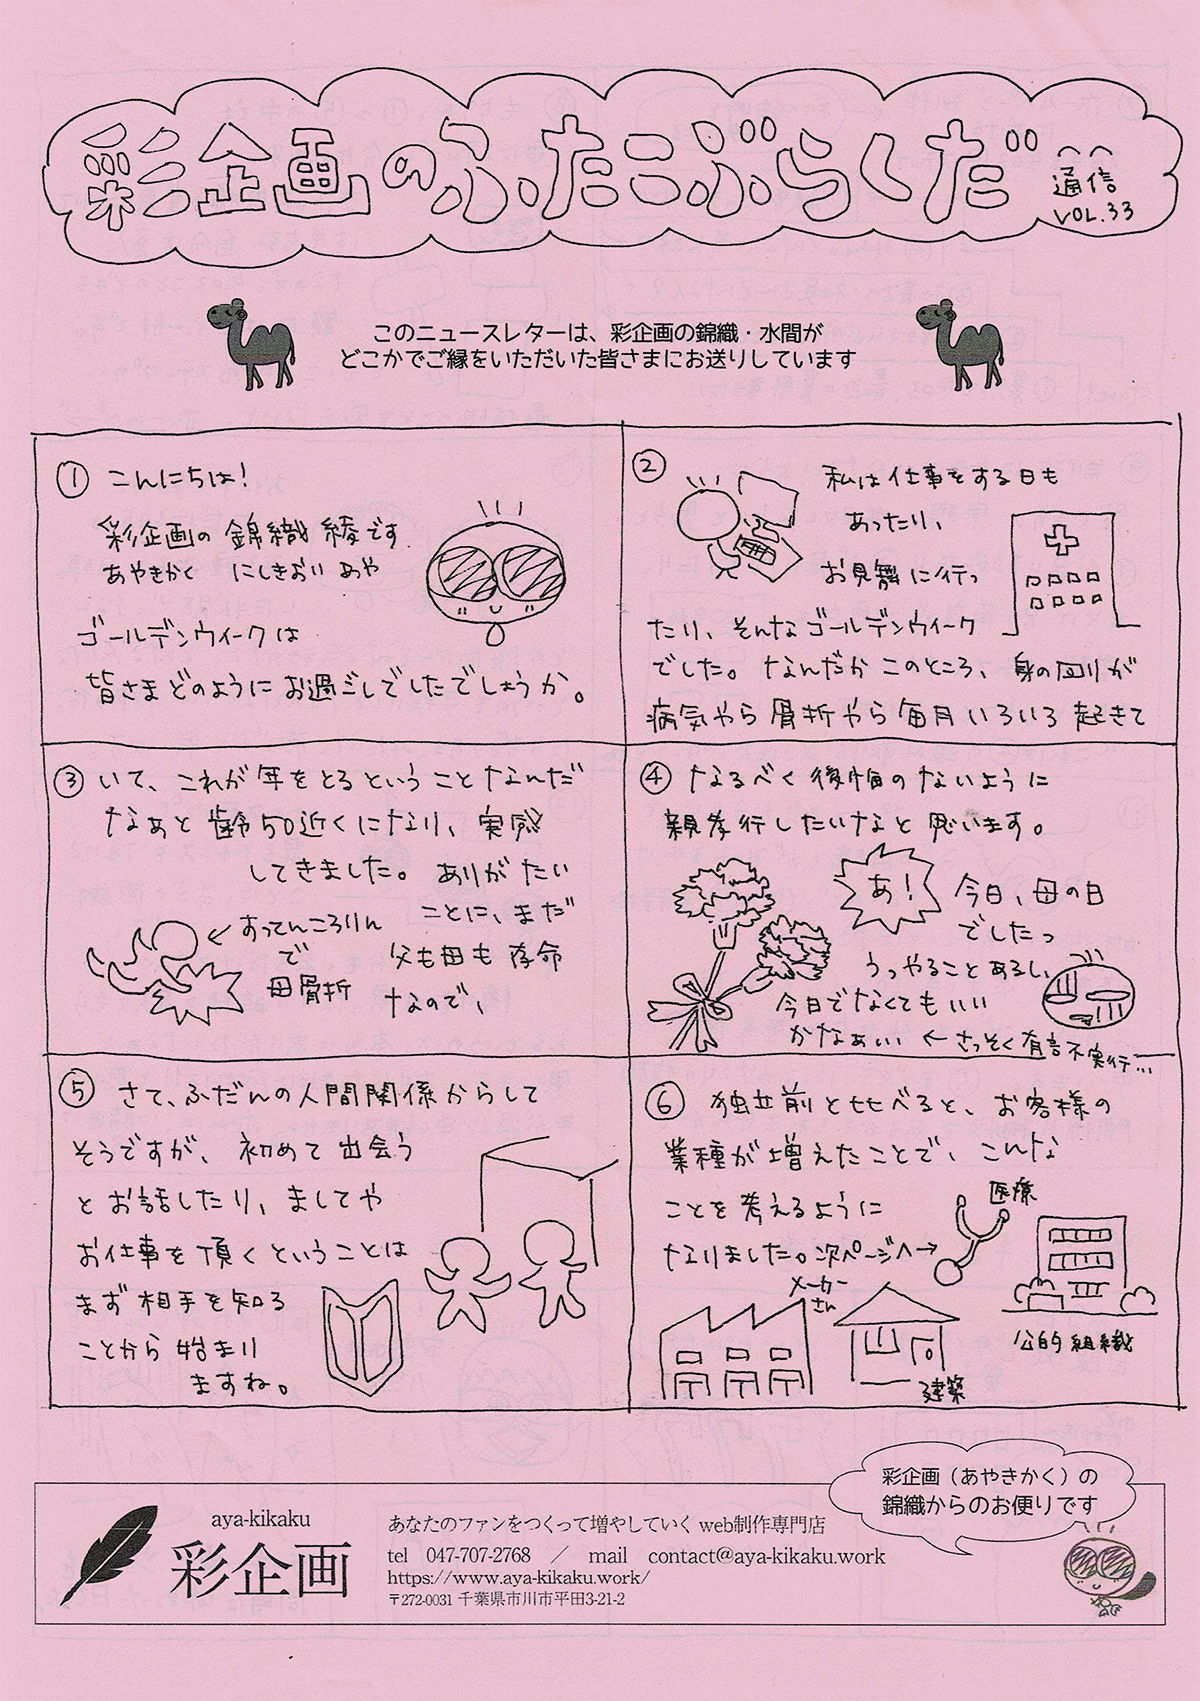 彩企画のふたこぶらくだ
通信
VOL.33
このニュースレターは、彩企画の錦織・水間が
どこかでご縁をいただいた皆さまにお送りしています
① こんにちは！
彩企画の錦織綾です
あやきかく にしきおり あや
ゴールデンウィークは
皆さまどのようにお過ごしでしたでしょうか。
② 私は仕事をする日も
あったり、
お見舞に行っ
たり、そんなゴールデンウィーク
でした。なんだかこのところ、身の回りが
病気やら骨折やら毎月いろいろ起きて
③ いて、これが年をとるということなんだ
なぁと齢50近くになり、実感
してきました。ありがたい
ことに、まだ
父も母も存命
なので、
←すってんころりん
で
母骨折
④ なるべく後悔のないように
親孝行したいなと思います。
あ！
今日、母の日
でしたっ
うっやることあるし、
今日でなくてもいい
かなぁ… ←さっそく有言不実行…
⑤ さて、ふだんの人間関係からして
そうですが、初めて出会う
とお話したり、ましてや
お仕事を頂くということは
まず相手を知る
ことから始まり
ますね。
⑥ 独立前と比べると、お客様の
業種が増えたことで、こんな
ことを考えるように
なりました。次ページへ→
医療
メーカー
さん
公的組織
建築
彩企画（あやきかく）の
錦織からのお便りです
aya-kikaku
彩企画
あなたのファンをつくって増やしていく web制作専門店
tel 047-707-2768 ／ mail contact@aya-kikaku.work
https://www.aya-kikaku.work/
〒272-0031 千葉県市川市平田3-21-2